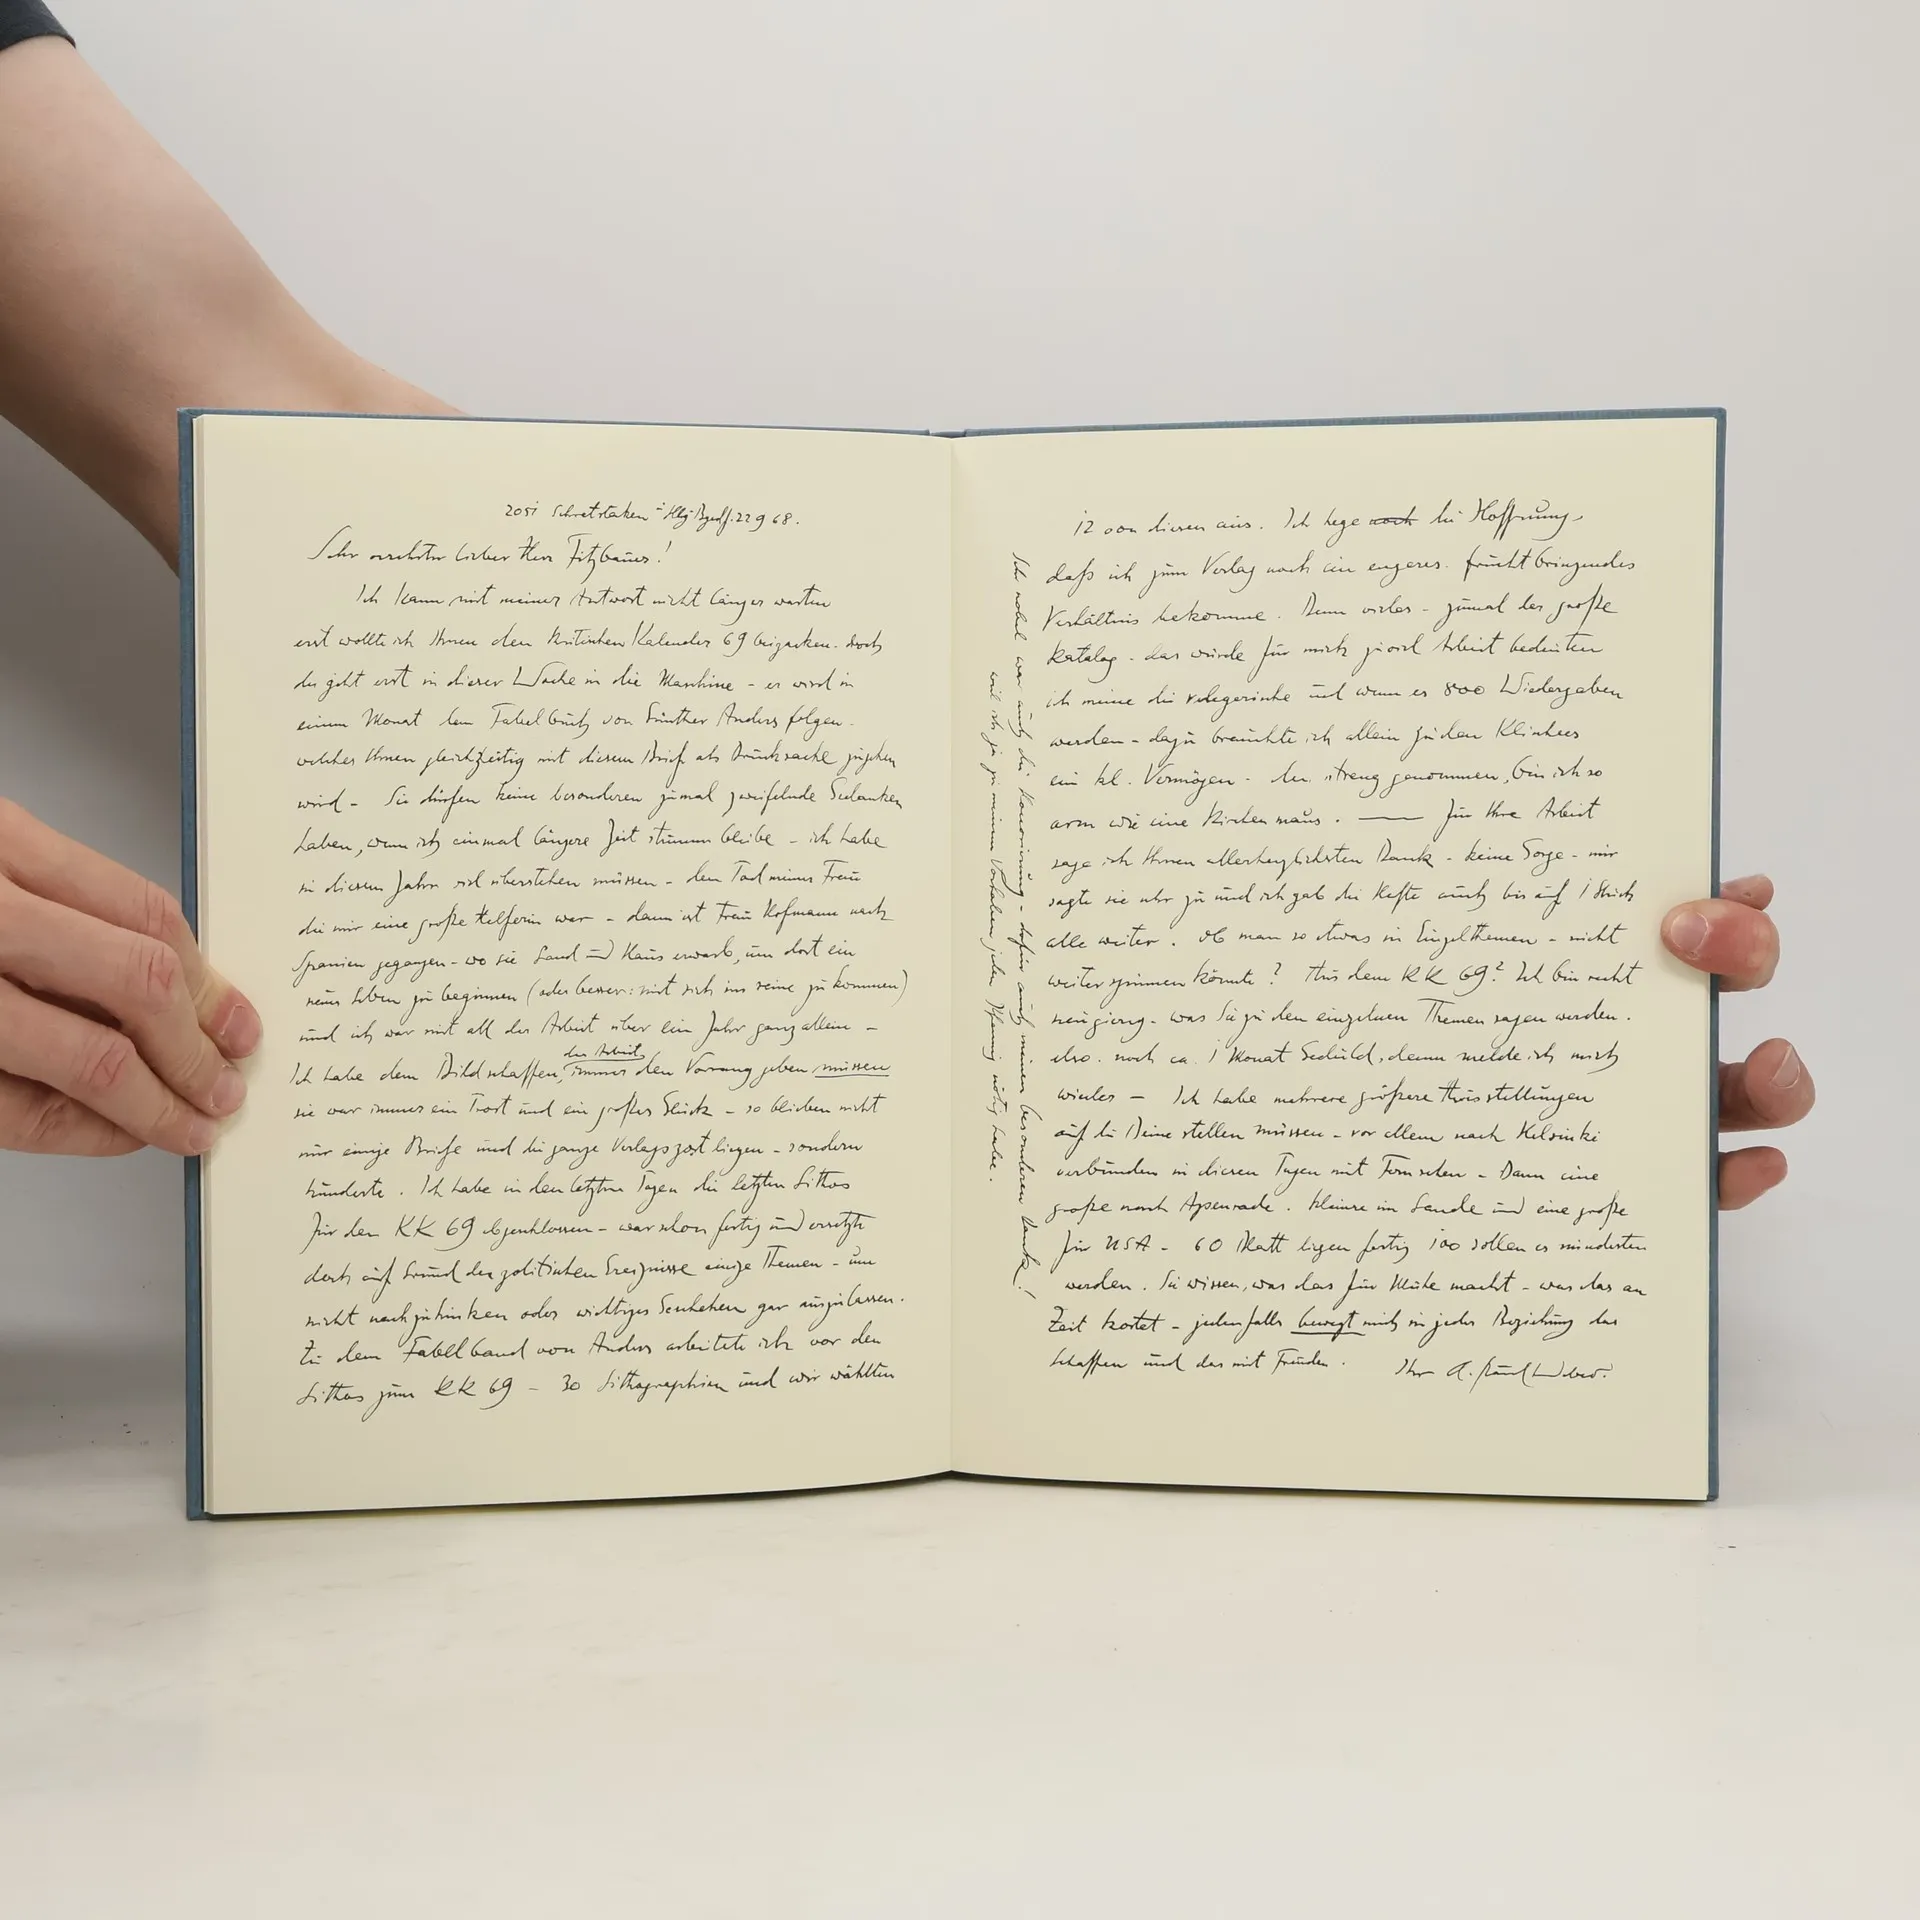 2051 Schretstaken 22 9 68.
Sehr verehrter lieber Herr Fitzbauer!
Ich kann mit meiner Antwort nicht länger warten
erst wollte ich Ihnen den Kritischen Kalender 69 beipacken. doch
der geht erst in dieser Woche in die Maschine – er wird in
einem Monat dem Fabelbuch von Günther Anders folgen.
welches Ihnen gleichzeitig mit diesem Brief als Drucksache zugehen
wird – Sie dürfen keine besonderen zumal zweifelnde Gedanken
haben, wenn ich einmal längere Zeit stumm bleibe – ich habe
in diesem Jahr viel überstehen müssen – den Tod meiner Frau
die mir eine große Helferin war – dann ist Frau Hofmann nach
Spanien gegangen – wo sie Land und Haus erwarb, um dort ein
neues Leben zu beginnen (oder besser: mit sich ins reine zu kommen)
und ich war mit all der Arbeit über ein Jahr ganz allein –
Ich habe dem Bildschaffen, der Arbeit, immer den Vorrang geben müssen
sie war immer ein Trost und ein großes Glück – so blieben nicht
nur einige Briefe und die ganze Verlagspost liegen – sondern
hunderte. Ich habe in den letzten Tagen die letzten Lithos
für den KK 69 abgeschlossen – war schon fertig und ersetzte
doch auf Grund der politischen Ereignisse einige Themen – um
nicht nachzuhinken oder wichtiges Geschehen gar auszulassen.
Zu dem Fabelband von Anders arbeitete ich vor den
Lithos zum KK 69 – 30 Lithographien und wir wählten
12 von diesen aus. Ich hege noch die Hoffnung,
daß ich zum Verlag noch ein engeres. fruchtbringendes
Verhältnis bekomme. Denn vieles – zumal der große
Katalog – das würde für mich zuviel Arbeit bedeuten
ich meine die verlegerische und wenn es 800 Wiedergaben
werden – dazu brauchte ich allein zu den Klischees
ein kl. Vermögen – streng genommen, bin ich so
arm wie eine Kirchenmaus. — Für Ihre Arbeit
sage ich Ihnen allerherzlichsten Dank – keine Sorge – mir
sagte sie sehr zu und ich gab die Hefte auch bis auf 1 Stück
alle weiter. Ob man so etwas in Einzelthemen – nicht
weiterspinnen könnte? Aus dem KK 69? Ich bin recht
neugierig – was Sie zu den einzelnen Themen sagen werden.
also. noch ca. 1 Monat Geduld, dann melde ich mich
wieder – Ich habe mehrere größere Ausstellungen
auf die Beine stellen müssen – vor allem nach Helsinki
verbunden in diesen Tagen mit Fernsehen – Dann eine
große nach Apenrade. Kleinere im Lande und eine große
für USA – 60 Blatt liegen fertig 100 sollen es mindestens
werden. Sie wissen, was das für Mühe macht – was das an
Zeit kostet – jedenfalls bewegt mich in jeder Beziehung das
Schaffen und das mit Freuden. Ihr A. Paul Weber.
Sehr nobel war auch die Honorierung – dafür auch meinen besonderen Dank!
weil ich ja zu meinem Vorhaben jeden Pfennig nötig habe.